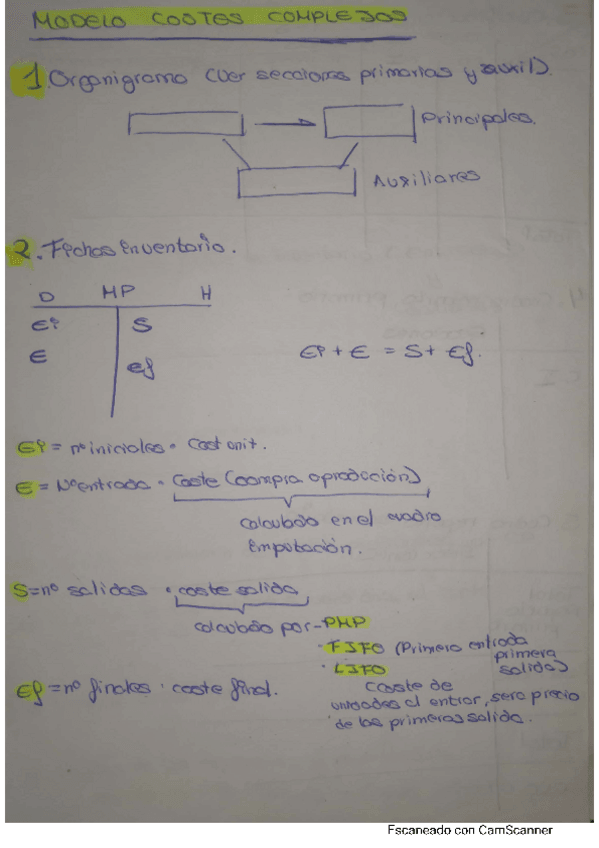 MODELO COSTES COMPLEJOS
1. Organigrama (ver secciones primarias y auxil).
Principales.
Auxiliares
2. Fichas inventario.
D MP H
Ei S
E Ef
Ei + E = S + Ef.
Ei = nº iniciales · Cost unit.
E = Nº entrada · Coste (compra o producción)
calculado en el cuadro
imputación.
S = nº salidas · coste salida
calculado por - PMP
· FIFO (Primera entrada
primera
salida)
· LIFO
Ef = nº finales · coste final.
Coste de
unidades al entrar, sera precio
de las primeras salida.
Escaneado con CamScanner